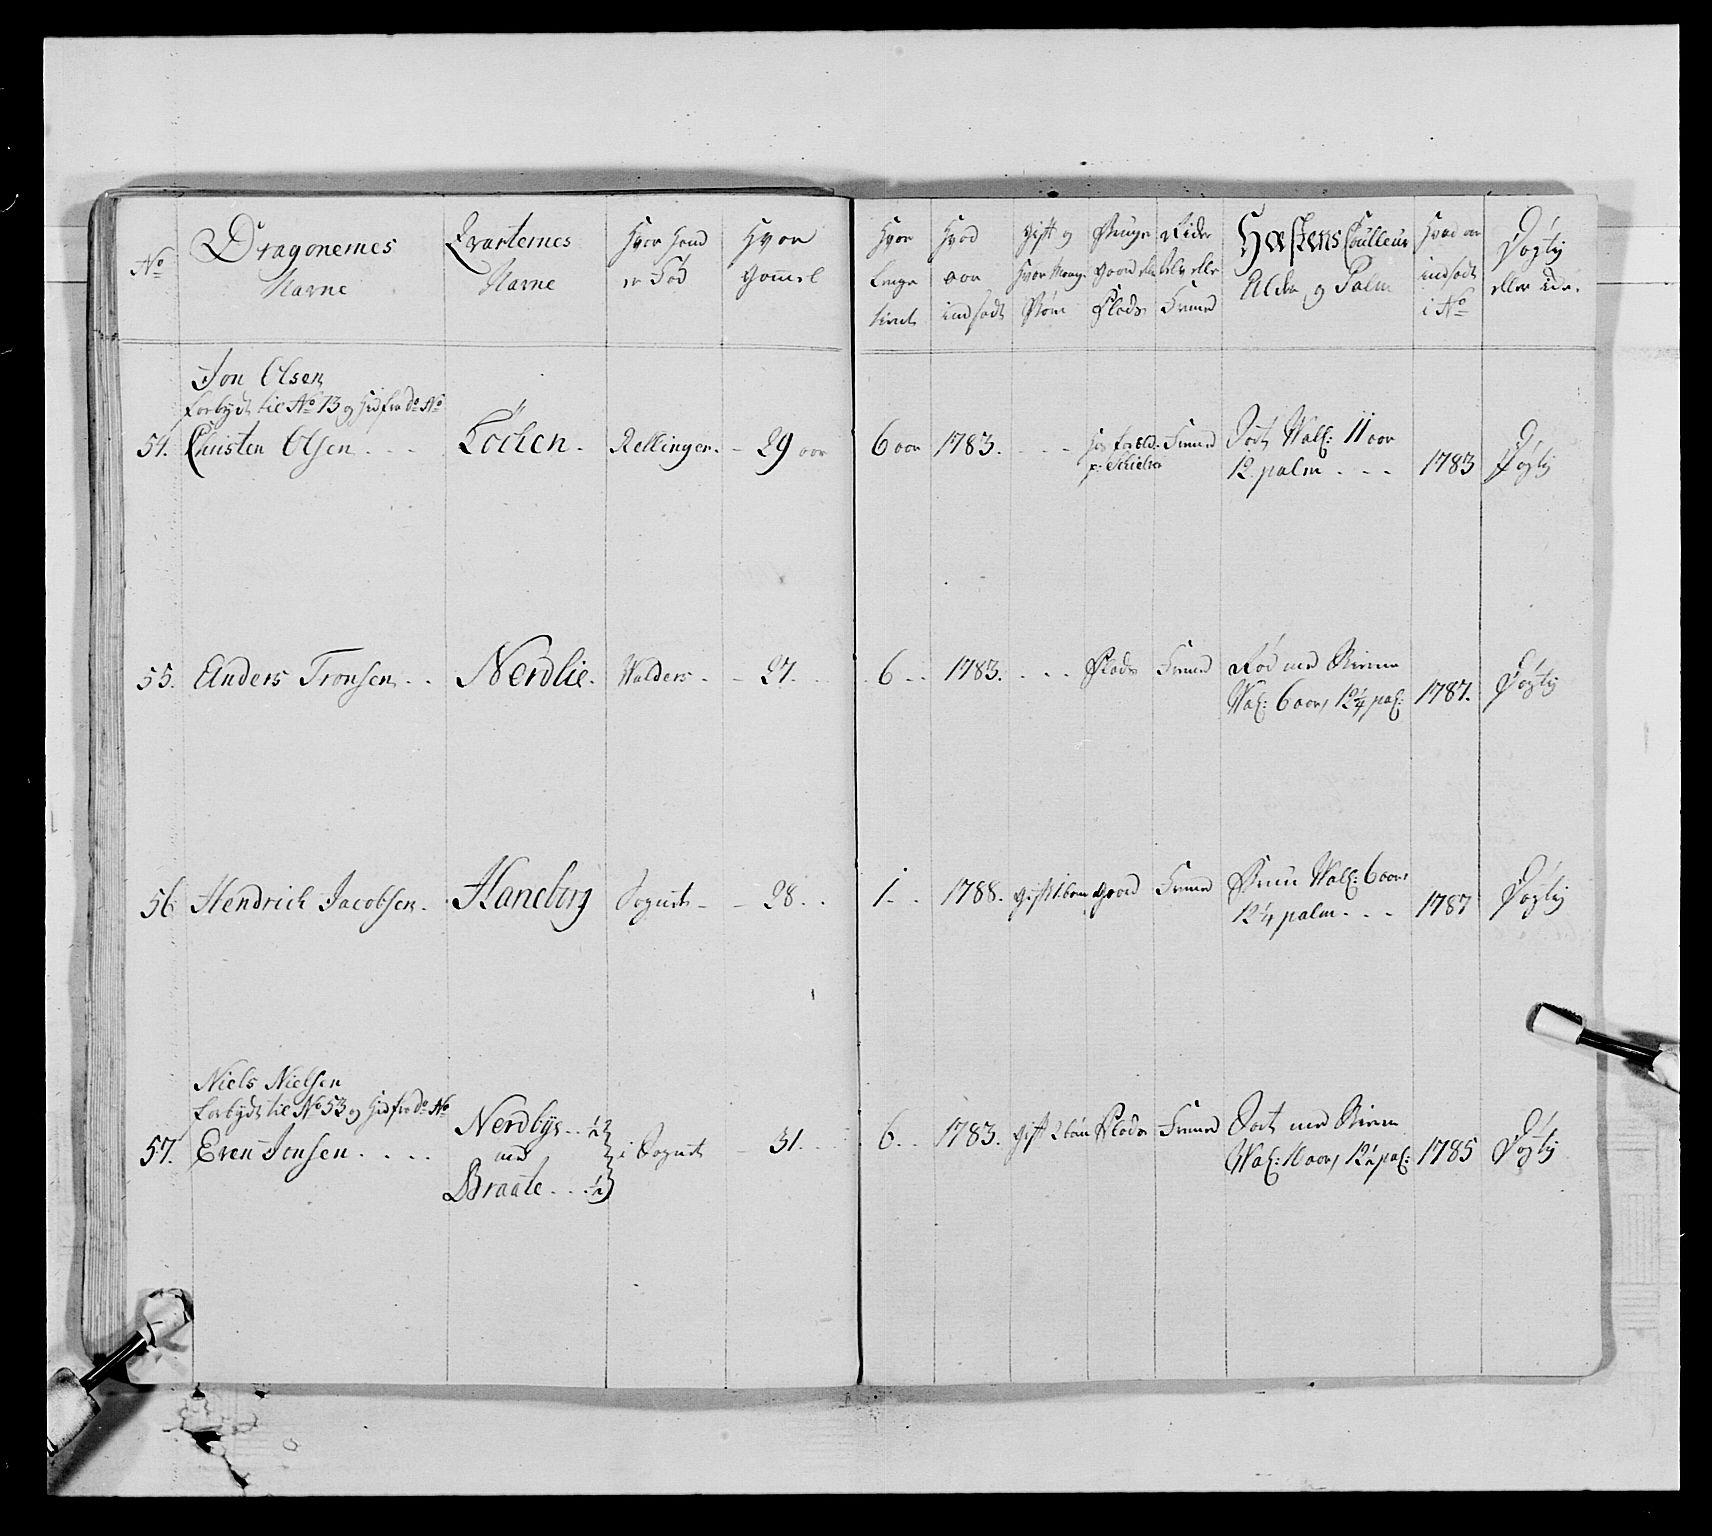 No Dragonernes Navne
Qvarternes Navne
Hvor Hand er Fød
Hvor gammel
Hvor lenge tient
Hvad aar indsadt
Gift og Hvor mange Børn
Bruger gaard eller Plads
Rider selv eller Svend
Hæstens Coulleur Alder og Palm
Hvad aar indsadt i No
Dygtig eller icke.
Jon Olsen
forbydt til No 13 og hid fra do No
54. Christen Olsen . . . . Löchen . Rellinger . - 29 aar 6 aar 1783 . . . . hos foreld: Svend Sort Wall: 11 aar
12 palm . . . 1783 Dygtig
55. Anders Tronsen . . Nerdlie . Walders . - 27 . . . 6 . . 1783 . . . . Plads Svend Rød med Blisen
Wal: 6 aar, 12 1/4 pal: 1787. Dygtig
56 Hendrich Jacobsen . Haneborg Sognet - - 28 . . 1 . . 1788. gift 1 barn gaard Svend Brun Wall: 6 aar,
12 1/4 palm . . . 1787 Dygtig
Niels Nielsen
forbydt til No 53 og hid fra do No
57. Even Jonsen . . . . Nerdbye . . 1/2
med
Braate . . . 1/2 i Sognet - 31 . . . 6 . . 1783. gift 2 børn Plads Svend Sort med Blisen
Wal: 11 aar, 12 1/2 pal: 1785 Dygtig